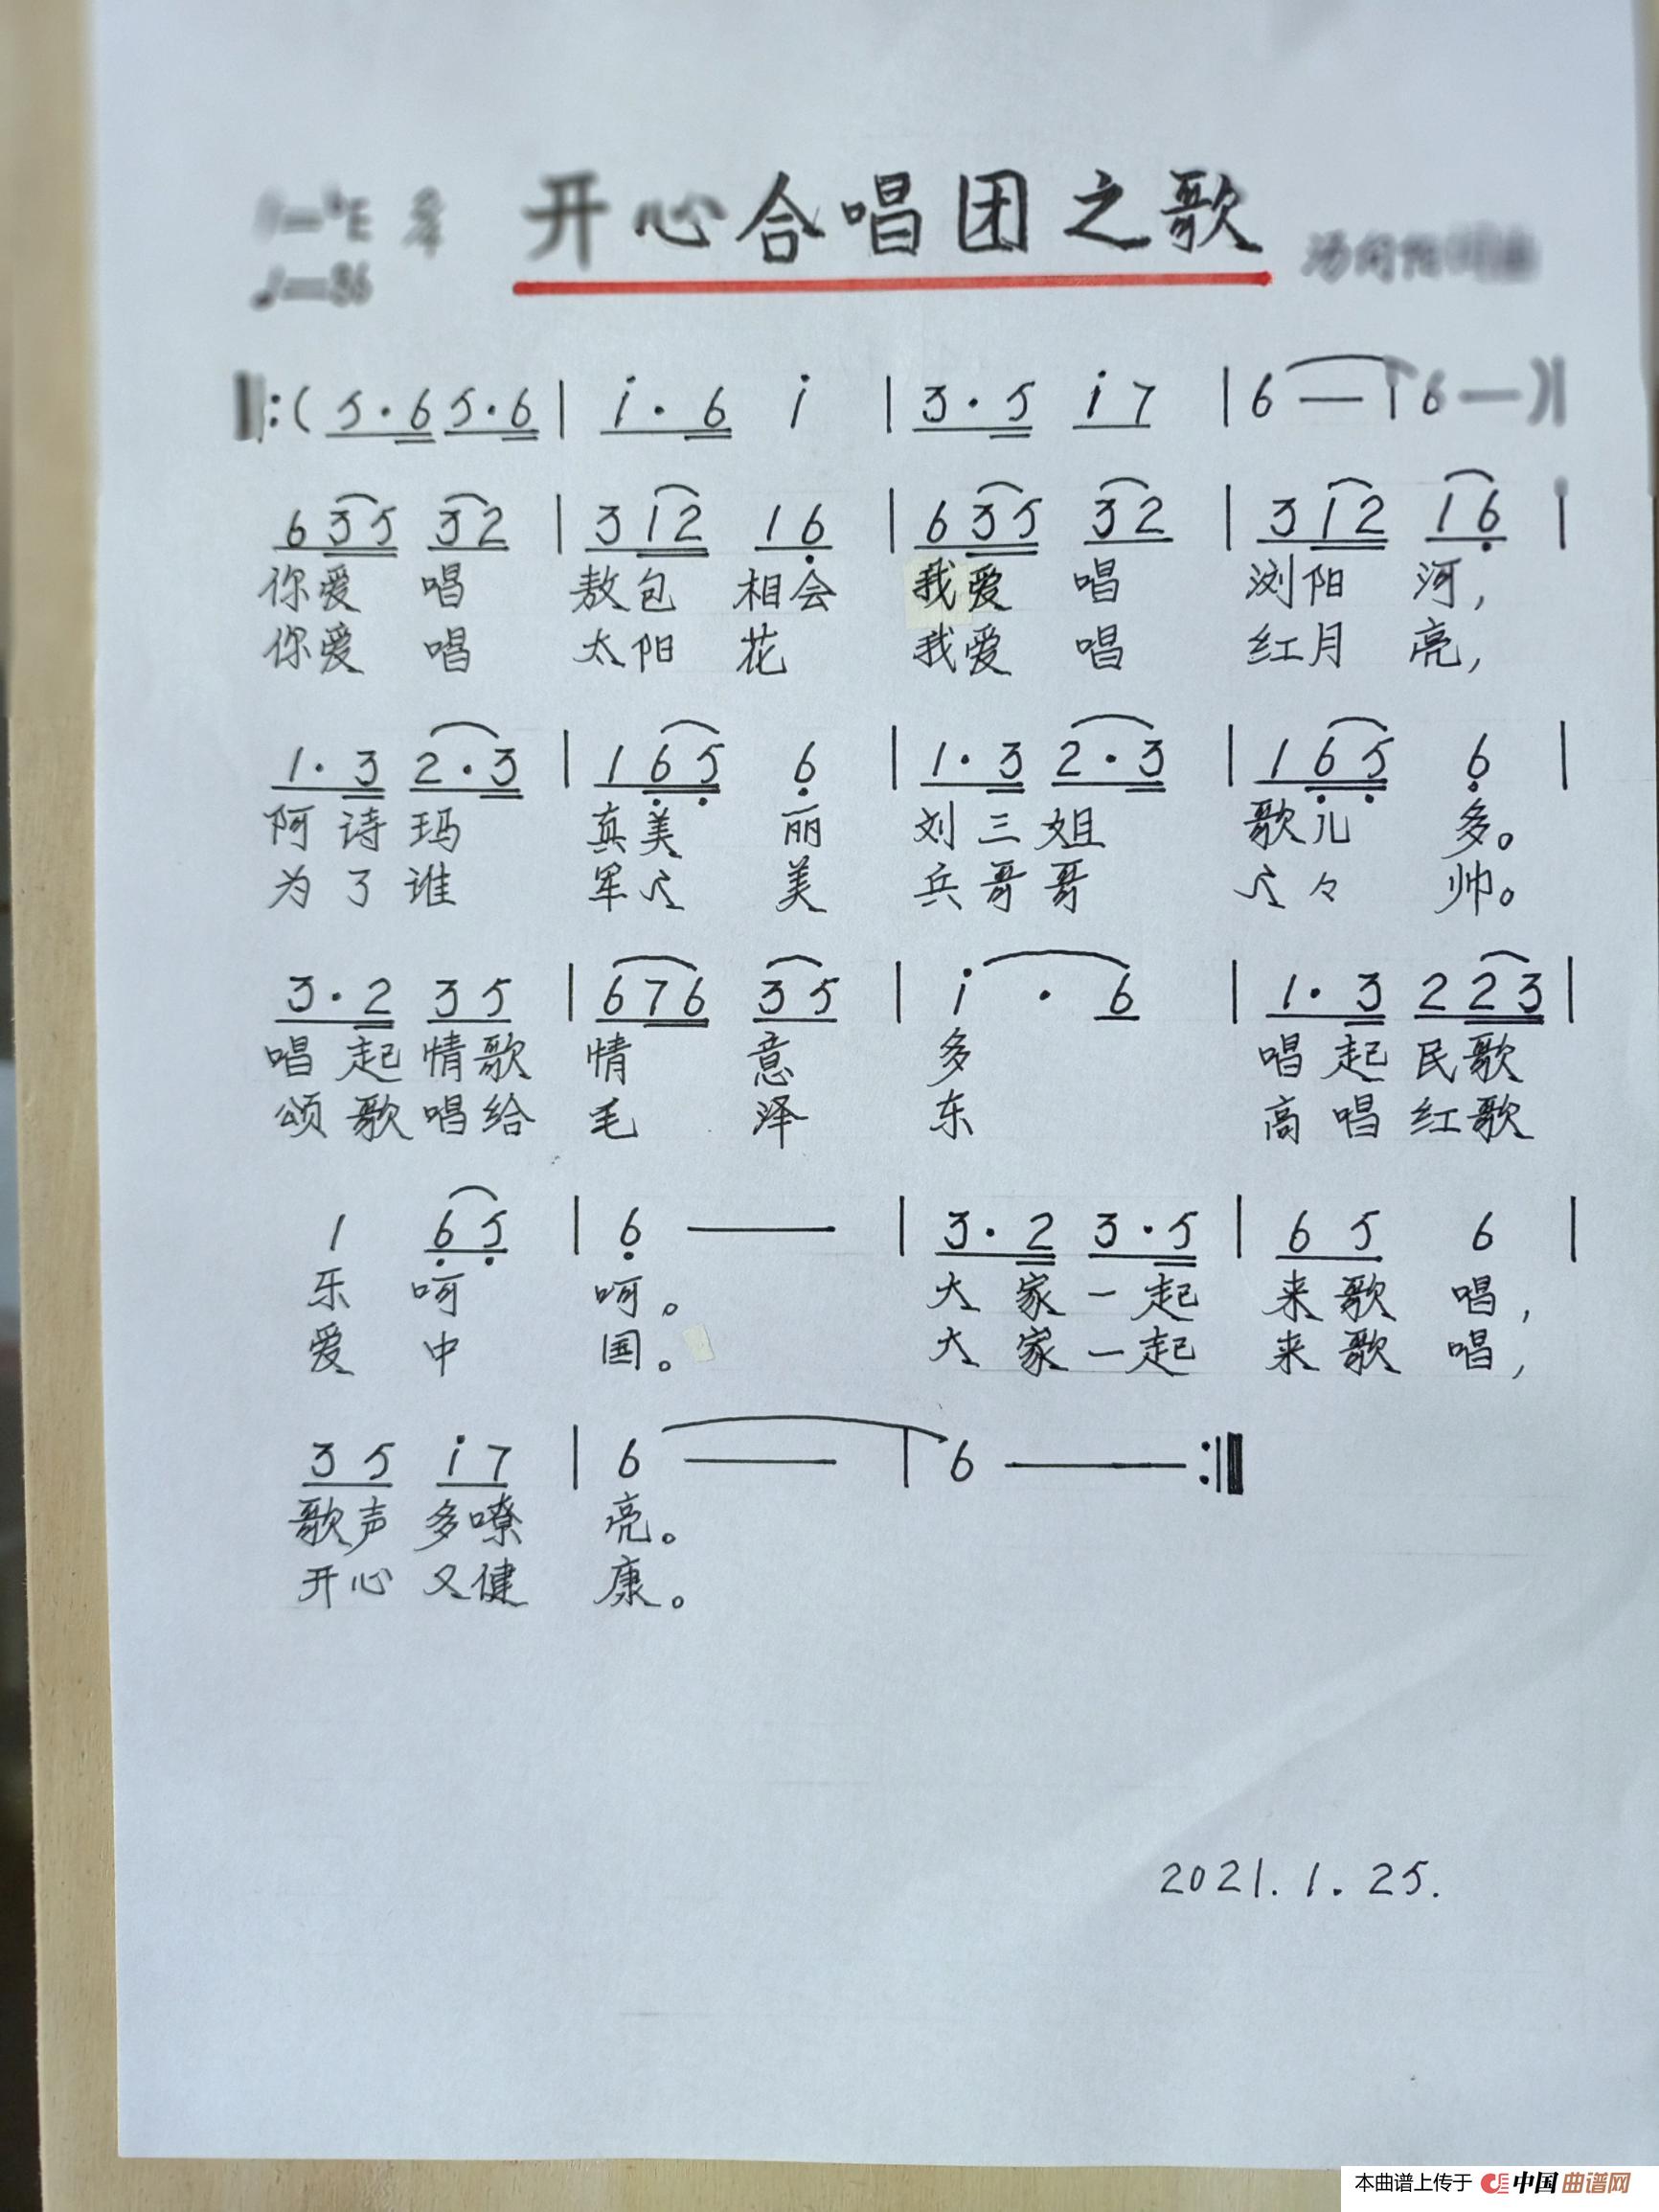 开心合唱团之歌
=♭E
♩=86
‖:( 5·6 5·6 | i·6 i | 3·5 i 7 | 6 — | 6 — )|
6 3 5 3 2 | 3 1 2 1 6 | 6 3 5 3 2 | 3 1 2 1 6 |
你爱 唱 敖包 相会 我爱 唱 浏阳 河,
你爱 唱 太阳 花 我爱 唱 红月 亮,
1·3 2·3 | 1 6 5 6 | 1·3 2·3 | 1 6 5 6 |
阿诗玛 真美 丽 刘三姐 歌儿 多。
为了谁 军 美 兵哥哥 々 帅。
3·2 3 5 | 6 7 6 3 5 | i · 6 | 1·3 2 2 3 |
唱起情歌 情 意 多 唱起民歌
颂歌唱给 毛 泽 东 高唱红歌
1 6 5 | 6 — | 3·2 3·5 | 6 5 6 |
乐 呵 呵。 大家一起 来歌 唱,
爱 中 国。 大家一起 来歌 唱,
3 5 i 7 | 6 — | 6 — :‖
歌声 多嘹 亮。
开心 又健 康。
2021.1.25.
本曲谱上传于 中国曲谱网